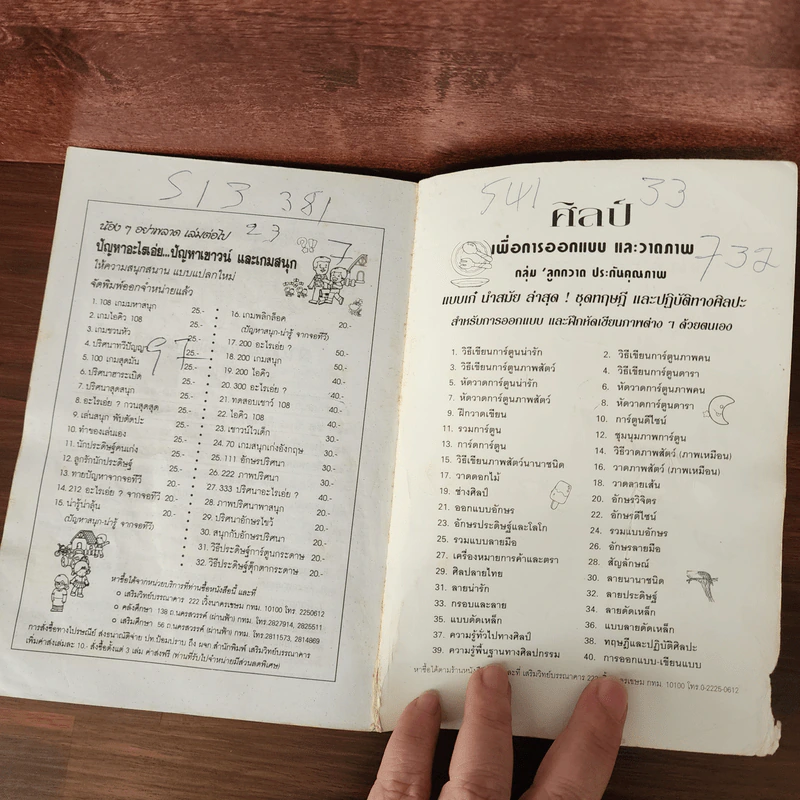 513 381
น้อง ๆ อย่าพลาด เล่มต่อไป 23
ปัญหาอะไรเอ่ย...ปัญหาเชาวน์ และเกมสนุก 7
ให้ความสนุกสนาน แบบแปลกใหม่
จัดพิมพ์ออกจำหน่ายแล้ว
1. 108 เกมมหาสนุก 25.-
2. เกมไอคิว 108 25.-
3. เกมชวนหัว 25.-
4. ปริศนาทวีปัญญา 25.-
97
5. 100 เกมสุดมัน 25.-
6. ปริศนาฮาระเบิด 25.-
7. ปริศนาสุดสนุก 25.-
8. อะไรเอ่ย ? กวนสุดสุด 25.-
9. เล่นสนุก พับดัดปะ 25.-
10. ทำของเล่นเอง 25.-
11. นักประดิษฐ์คนเก่ง 25.-
12. ลูกรักนักประดิษฐ์ 25.-
13. ทายปัญหาจากจอทีวี 20.-
14. 212 อะไรเอ่ย ? จากจอทีวี 20.-
15. น่ารู้น่าลุ้น 20.-
(ปัญหาสนุก-น่ารู้ จากจอทีวี)
16. เกมพลิกล็อค 20.-
(ปัญหาสนุก-น่ารู้ จากจอทีวี)
17. 200 อะไรเอ่ย ? 50.-
18. 200 เกมสนุก 50.-
19. 200 ไอคิว 40.-
20. 300 อะไรเอ่ย ? 40.-
21. ทดสอบเชาว์ 108 30.-
22. ไอคิว 108 30.-
23. เชาวน์ไวเด็ก 30.-
24. 70 เกมสนุกเก่งอังกฤษ 30.-
25. 111 อักษรปริศนา 30.-
26. 222 ภาพปริศนา 30.-
27. 333 ปริศนาอะไรเอ่ย ? 40.-
28. ภาพปริศนาพาสนุก 20.-
29. ปริศนาอักษรไขว้ 20.-
30. สนุกกับอักษรปริศนา 20.-
31. วิธีประดิษฐ์การ์ตูนกระดาษ 20.-
32. วิธีประดิษฐ์ตุ๊กตากระดาษ 20.-
หาซื้อได้จากหน่วยบริการที่ท่านซื้อหนังสือนี้ และที่
o เสริมวิทย์บรรณาคาร 222 เวิ้งนาครเขษม กทม. 10100 โทร 2250612
o คลังศึกษา 138 ถ.นครสวรรค์ (ผ่านฟ้า) กทม. โทร.2827914, 2825511
o เสริมศึกษา 56 ถ.นครสวรรค์ (ผ่านฟ้า) กทม. โทร.2811573, 2814869
การสั่งซื้อทางไปรษณีย์ ส่งธนาณัติจ่าย ปท.ป้อมปราบ ถึง ผจก สำนักพิมพ์ เสริมวิทย์บรรณาคาร
เพิ่มค่าส่งเล่มละ 10.- สั่งซื้อตั้งแต่ 3 เล่ม ค่าส่งฟรี (ท่านที่รับไปจำหน่ายมีส่วนลดพิเศษ)
541 33
ศิลป์
เพื่อการออกแบบ และวาดภาพ 732
กลุ่ม 'ลูกกวาด ประกันคุณภาพ
แบบเก๋ นำสมัย ล่าสุด ! ชุดทฤษฎี และปฏิบัติทางศิลปะ
สำหรับการออกแบบ และฝึกหัดเขียนภาพต่าง ๆ ด้วยตนเอง
1. วิธีเขียนการ์ตูนน่ารัก 2. วิธีเขียนการ์ตูนภาพคน
3. วิธีเขียนการ์ตูนภาพสัตว์ 4. วิธีเขียนการ์ตูนดารา
5. หัดวาดการ์ตูนน่ารัก 6. หัดวาดการ์ตูนภาพคน
7. หัดวาดการ์ตูนภาพสัตว์ 8. หัดวาดการ์ตูนดารา
9. ฝึกวาดเขียน 10. การ์ตูนดีไซน์
11. รวมการ์ตูน 12. ชุมนุมภาพการ์ตูน
13. การ์ดการ์ตูน 14. วิธีวาดภาพสัตว์ (ภาพเหมือน)
15. วิธีเขียนภาพสัตว์นานาชนิด 16. วาดภาพสัตว์ (ภาพเหมือน)
17. วาดดอกไม้ 18. วาดลายเส้น
19. ช่างศิลป์ 20. อักษรวิจิตร
21. ออกแบบอักษร 22. อักษรดีไซน์
23. อักษรประดิษฐ์และโลโก 24. รวมแบบอักษร
25. รวมแบบลายมือ 26. อักษรลายมือ
27. เครื่องหมายการค้าและตรา 28. สัญลักษณ์
29. ศิลปลายไทย 30. ลายนานาชนิด
31. ลายน่ารัก 32. ลายประดิษฐ์
33. กรอบและลาย 34. ลายดัดเหล็ก
35. แบบดัดเหล็ก 36. แบบลายดัดเหล็ก
37. ความรู้ทั่วไปทางศิลป์ 38. ทฤษฎีและปฏิบัติศิลปะ
39. ความรู้พื้นฐานทางศิลปกรรม 40. การออกแบบ-เขียนแบบ
หาซื้อได้ตามร้านหนังสือ และที่ เสริมวิทย์บรรณาคาร 222 กทม. 10100 โทร.0-2225-0612